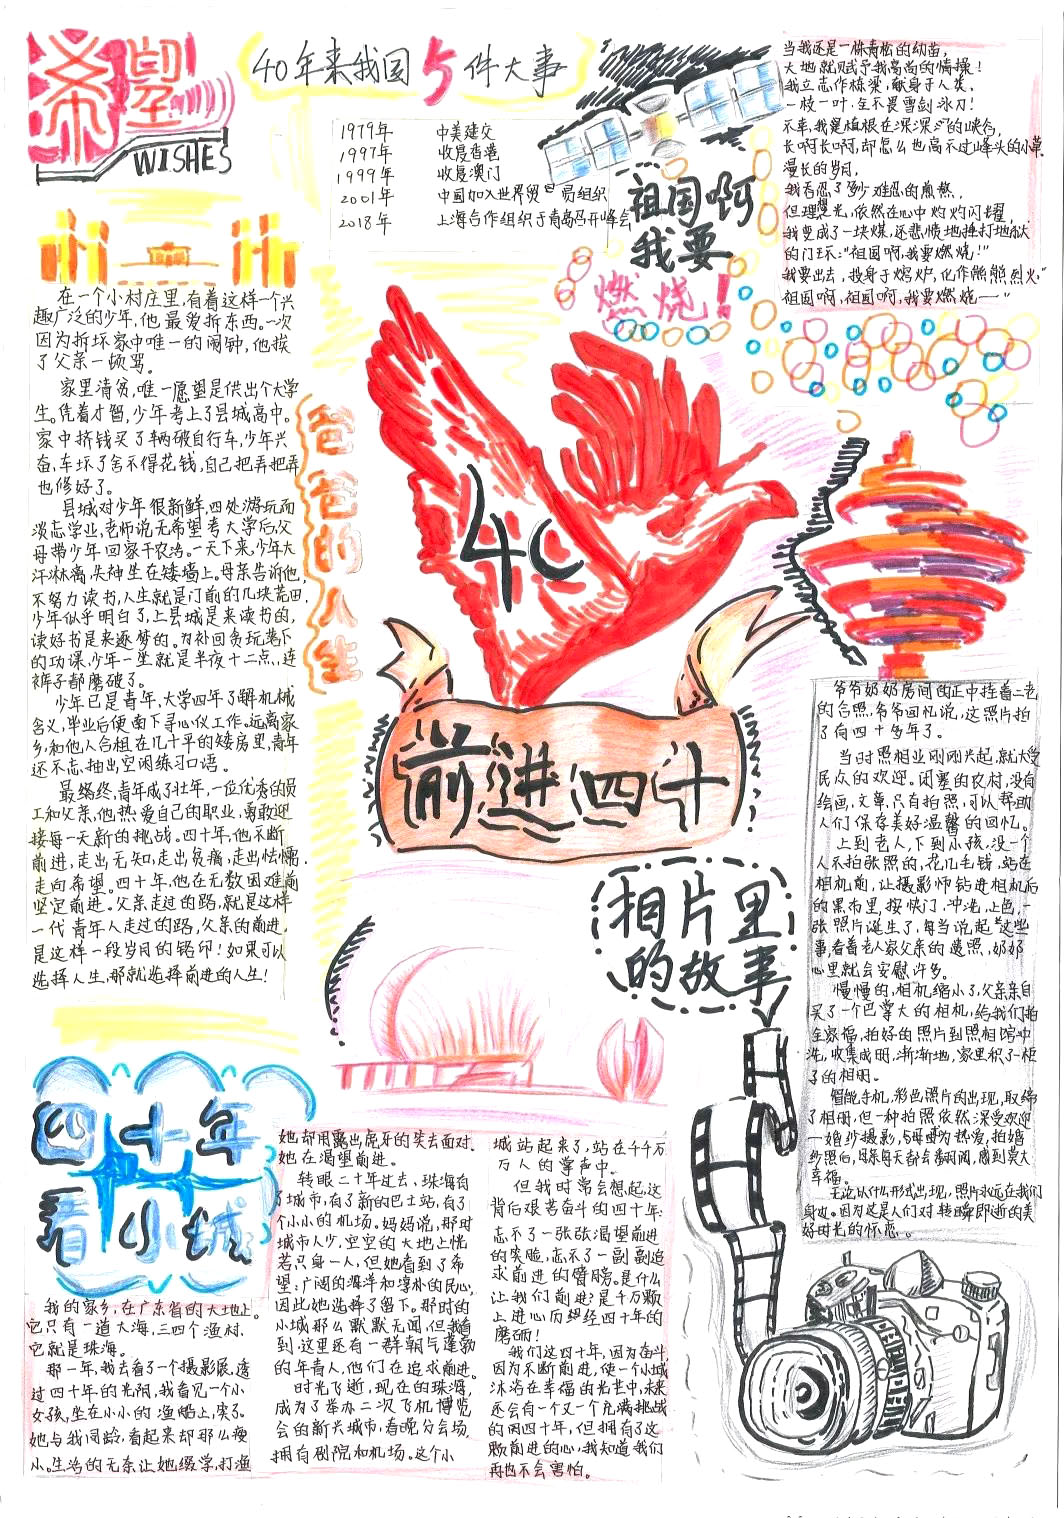 希望
WISHES
40年来我国5件大事
1979年 中美建交
1997年 收复香港
1999年 收复澳门
2001年 中国加入世界贸易组织
2018年 上海合作组织于青岛召开峰会
祖国啊
我要
燃烧!
当我还是一株青松的幼苗,
大地就赋予我高尚的情操!
我立志作栋梁,献身于人类,
一枝一叶,全不畏雪剑冰刀!
不幸,我是植根在深深的峡谷,
长啊长啊,却怎么也高不过峰头的小草.
漫长的岁月,
我吞忍了多少难忍的煎熬,
但理想之光,依然在心中灼灼闪耀,
我变成了一块煤,还悲愤地捶打地狱
的门环:"祖国啊,我要燃烧!"
我要出去,投身于熔炉,化作熊熊烈火"
祖国啊,祖国啊,我要燃烧——"
在一个小村庄里,有着这样一个兴
趣广泛的少年,他最爱拆东西。一次
因为拆坏家中唯一的闹钟,他挨
了父亲一顿骂。
家里清贫,唯一愿望是供出个大学
生。凭着才智,少年考上了县城高中。
家中挤钱买了辆破自行车,少年兴
奋,车坏了舍不得花钱,自己把弄把弄
也修好了。
县城对少年很新鲜,四处游玩而
淡忘学业,老师说无希望考大学后,父
母带少年回家干农活。一天下来,少年大
汗淋漓,失神坐在矮墙上。母亲告诉他,
不努力读书,人生就是门前的几块荒田.
少年似乎明白了,上县城是来读书的,
读好书是来逐梦的。为补回贪玩落下
的功课,少年一坐就是半夜十二点,连
裤子都磨破了。
少年已是青年,大学四年了解机械
含义,毕业后便南下寻心仪工作。远离家
乡,和他人合租在几十平的矮房里,青年
还不忘抽出空闲练习口语。
最终,青年成了壮年,一位优秀的员
工和父亲,他热爱自己的职业,勇敢迎
接每一天新的挑战。四十年,他不断
前进,走出无知,走出贫痛,走出怯懦,
走向希望。四十年,他在无数困难前
坚定前进。父亲走过的路,就是这样
一代青年人走过的路,父亲的前进,
是这样一段岁月的铭印!如果可以
选择人生,那就选择前进的人生!
爸爸的人生
40
前进四十
相片里
的故事
爷爷奶奶房间的正中挂着二老
的合照,爷爷回忆说,这照片拍
了有四十多年了。
当时照相业刚刚兴起,就大受
民众的欢迎。闭塞的农村,没有
绘画,文章,只有拍照,可以帮助
人们保存美好温馨的回忆。
上到老人,下到小孩,没一个
人不拍张照的,花几毛钱,站在
相机前,让摄影师钻进相机后
的黑布里,按快门,冲洗,上色,一
张照片诞生了,每当说起这些
事,看着老人家父亲的遗照,奶奶
心里就会安慰许多。
慢慢的,相机缩小了,父亲亲自
买了一个巴掌大的相机,给我们拍
全家福,拍好的照片到照相馆冲
洗,收集成册,渐渐地,家里积了一柜
子的相册。
智能手机,彩色照片的出现,取缔
了相册,但一种拍照依然深受欢迎
—婚纱摄影,
幸福。
无论以什么形式出现,照片永远在我们
身边。因为这是人们对转瞬即逝的美
好时光的怀恋。
四十年
看小城
我的家乡,在广东省的大地上。
它只有一道大海,三四个渔村,
它就是珠海。
那一年,我去看了一个摄影展,透
过四十年的光阴,我看见一个小
女孩,坐在小小的渔船上,笑了。
她与我同龄,看起来却那么瘦
小。生活的无奈让她缀学,打渔
她却用露出虎牙的笑去面对.
她在渴望前进。
转眼二十年过去,珠海有
了城市,有了新的巴士站,有了
个小小的机场。妈妈说,那时
城市人少,空空的大地上恍
若只身一人,但她看到了希
望:广阔的海洋和淳朴的民心,
因此她选择了留下。那时的
小城那么默默无闻,但我看
到:这里还有一群朝气蓬勃
的年青人,他们在追求前进。
时光飞逝,现在的珠海,
成为了举办二次飞机博览
会的新兴城市,看晚分会场,
拥有剧院和机场。这个小
城站起来了,站在千千万
万人的掌声中。
但我时常会想起,这
背后艰苦奋斗的四十年:
忘不了一张张渴望前进
的笑脸,忘不了一副副追
求前进的臂膀。是什么
让我们前进?是千万颗
上进心历经四十年的
磨砺!
我们这四十年,因为奋斗,
因为不断前进,使一个小城
沐浴在幸福的光芒中,未来
还会有一个又一个充满挑战
的四四十年,但拥有了这
颗前进的心,我知道我们
再也不会害怕。